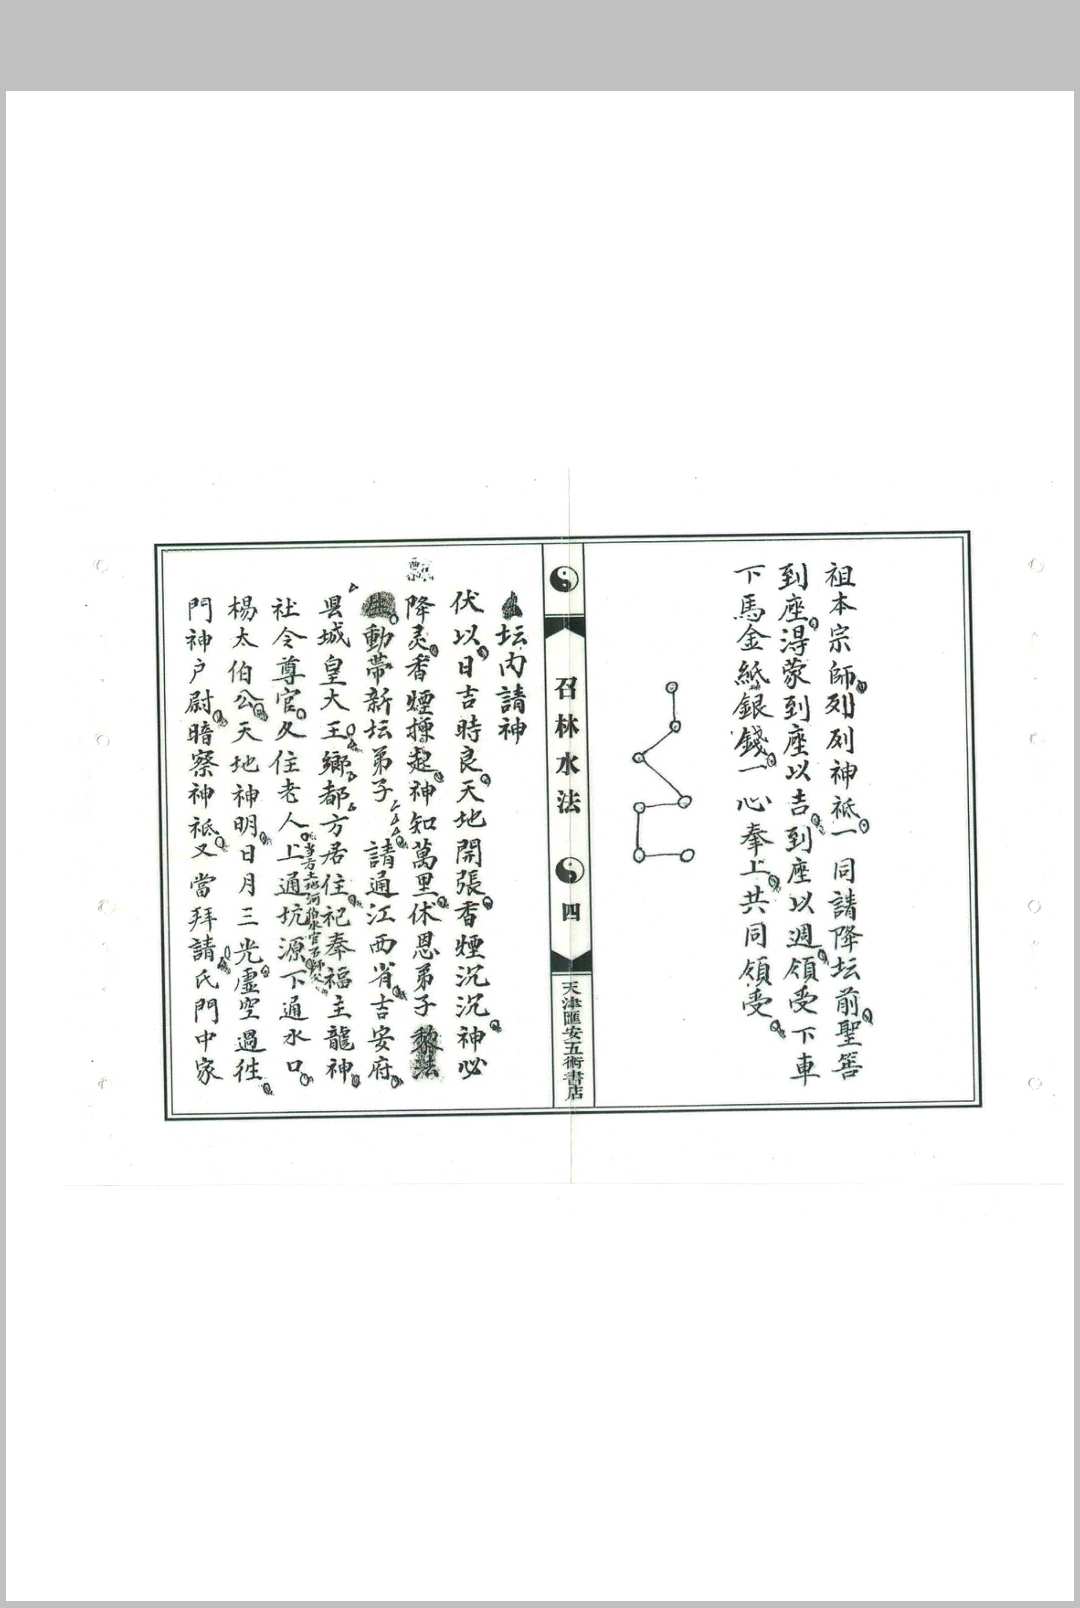 祖本宗師列列神祗一同請降坛前聖筶
到座得蒙到座以吉到座以週領受下車
下馬金紙銀錢一心奉上共同領受
召林水法
四
天津匯安五術書店
坛內請神
伏以日吉時良天地開張香煙沉沉神必
降灵香煙 起神知萬里伏恩弟子
動帶新坛弟子 請通江西省吉安府
县城皇大王鄉都方居住祀奉福主龍神
社令尊官久住老人上通坑源下通水口
楊太伯公天地神明日月三光虛空過往
門神户尉暗察神祗又當拜請氏門中家